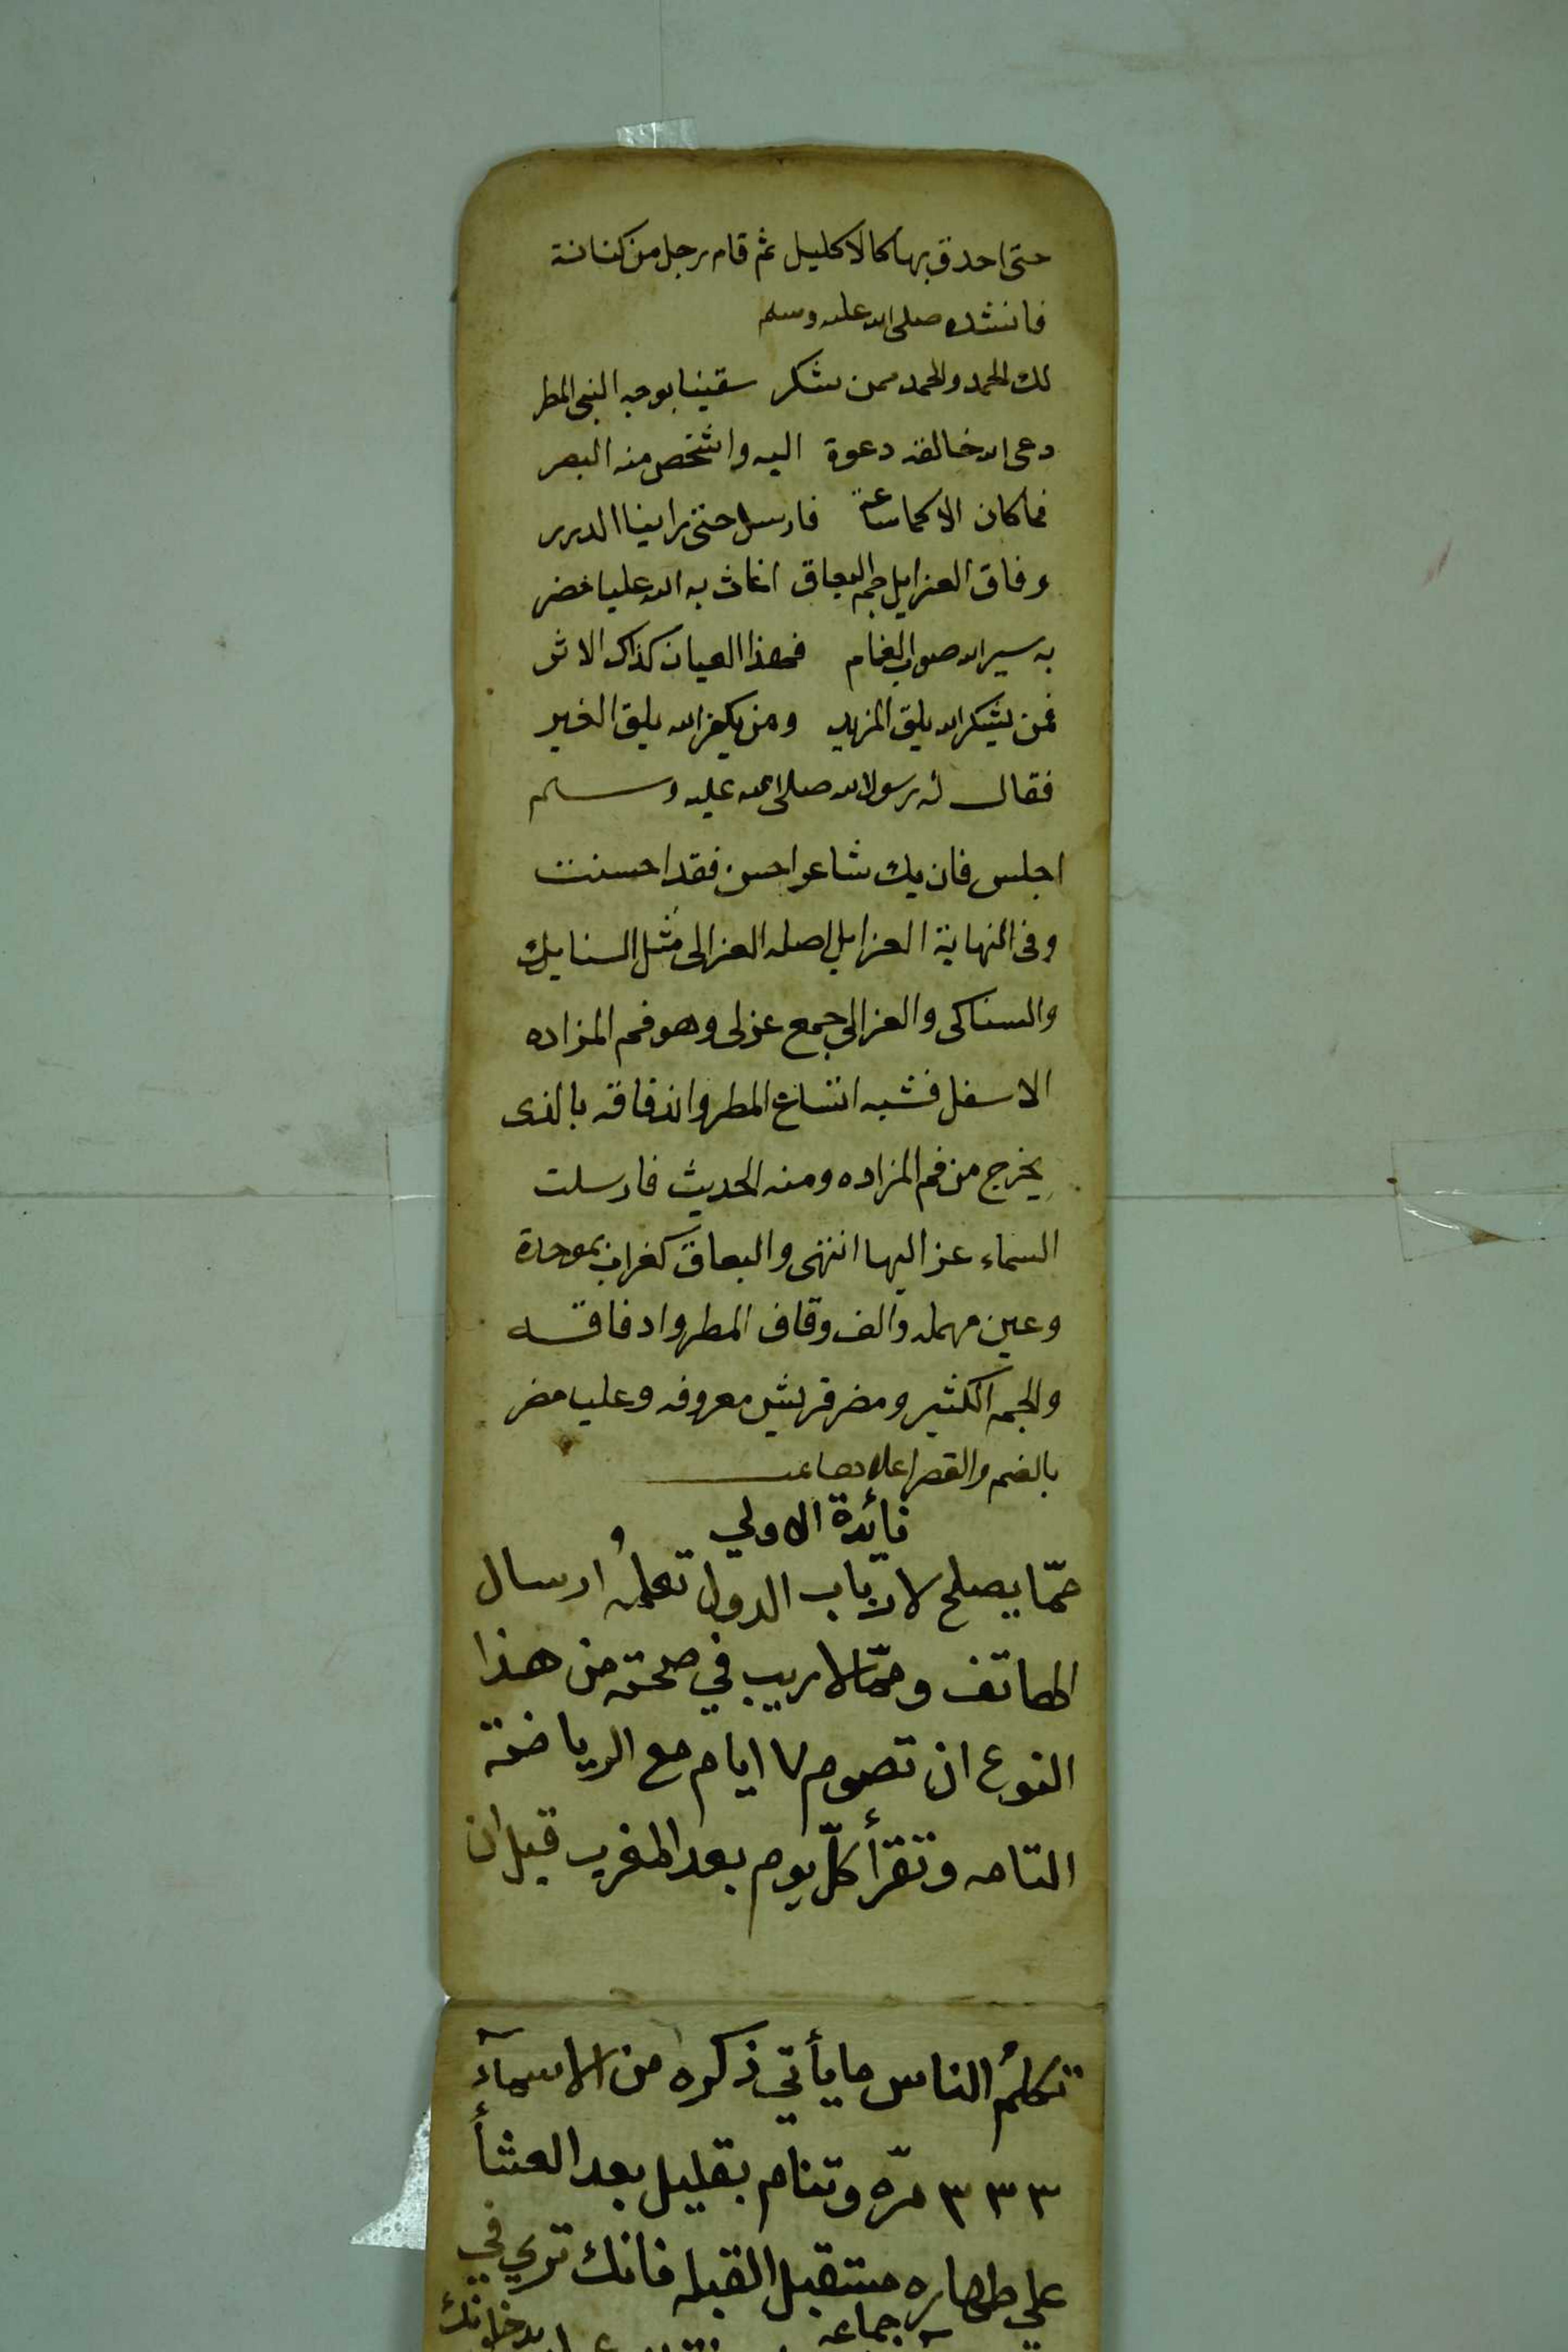 حتى احدق بها كالاكليل ثم قام رجل من كنانة
فانشده صلى الله عليه وسلم
لك الحمد والحمد ممن شكر سقينا بوجه النبي المطر
دعى الله خالقه دعوة اليه واشخص منه البصر
فما كان الا كما ساعة فارسل حتى راينا الدرر
وفاق العزايل جم البعاق اغاث به الله عليا مضر
به سير الله صوب الغمام فهذا العيان كذاك الاثر
فمن يشكر الله يلق المزيد ومن يكفر الله يلق الغير
فقال له رسول الله صلى الله عليه وسلم
اجلس فان يك شاعر احسن فقد احسنت
وفى النهاية العزايل اصله العزالى مثل السنايك
والسناكى والعزالي جمع عزلى وهو فم المزاده
الاسفل فشبه اتساع المطر واندفاقه بالذى
يخرج من فم المزاده ومنه الحديث فارسلت
السماء عزاليها انتهى والبعاق كغراب بموحدة
وعين مهمله والف وقاف المطر وادفاقه
والجم الكثير ومضر قريش معروفه وعليا مضر
بالضم والقصر
فائدة الاولي
ممّا يصلح لارباب الدول تعلمه وارسال
الهاتف وممّا لا ريب في صحته من هذا
النوع ان تصوم ٧ ايام مع الرياضة
التامه وتقرأ كلّ يوم بعد المغرب قبل ان
تكلم الناس ما يأتي ذكره من الاسمآء
٣٣٣ مرّه وتنام بقليل بعد العشأ
علي طهاره مستقبل القبله فانك تري في
جماعه